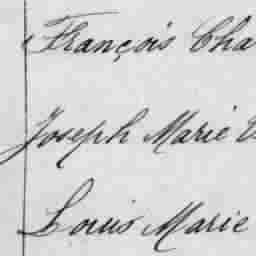 François Cha
Joseph Marie
Louis Marie